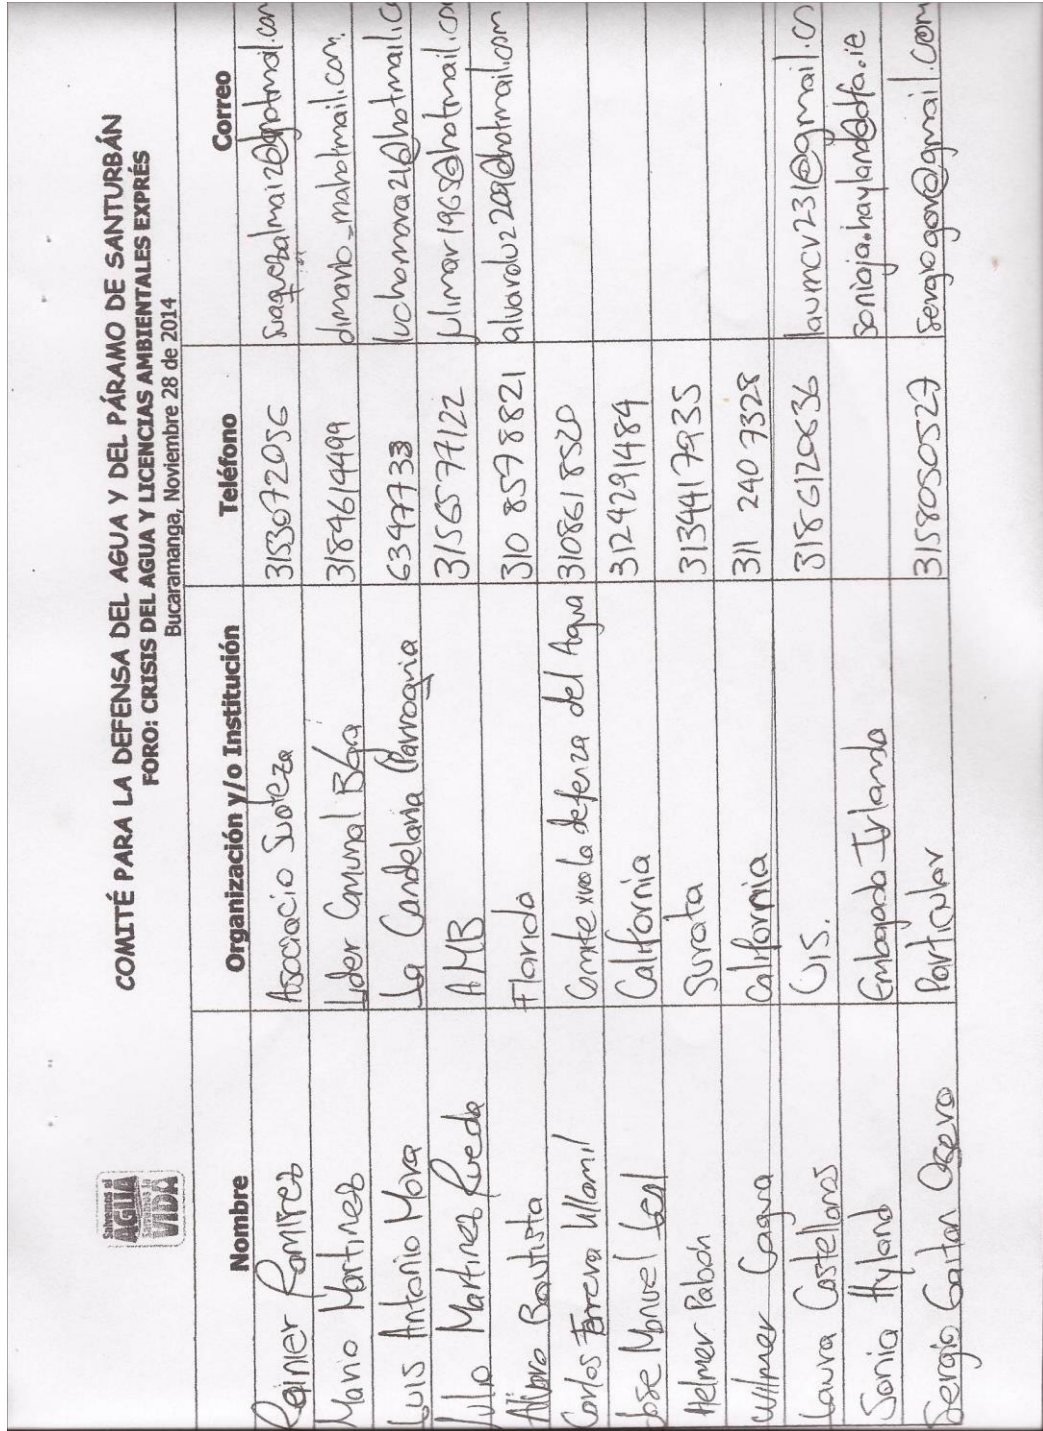 Salvemos el
AGUA
VIDA
COMITÉ PARA LA DEFENSA DEL AGUA Y DEL PÁRAMO DE SANTURBÁN
FORO: CRISIS DEL AGUA Y LICENCIAS AMBIENTALES EXPRÉS
Bucaramanga, Noviembre 28 de 2014
Nombre Organización y/o Institución Teléfono Correo
Reinier Ramirez Asociacio 3153672056
Mario Martinez Lider Comunal B/ga 3184614499 dimario_mahotmail.com
Luis Antonio Mora La Candelaria (Parroquia 6347733 luchomora21@hotmail.c
Julio Martinez Rueda AMB 3156577122 julimar1965@hotmail.co
Alvaro Bautista Florida 310 857 8821 alvaroluz209@hotmail.com
Carlos Ferreira Villamil Comite xva la defenza del Agua 310861 8520
Jose Manuel Leal California 3124291484
Helmer Pabón Surata 3134417935
Wilmer Gagua California 311 240 7328
Laura Castellanos UIS. 3186120636 laumcv231@gmail.co
Sonia Hyland Embajada Irlanda soniaja.hayland@dfa.ie
Sergio Gaitan Particular 3158050527 sergiogov@gmail.com